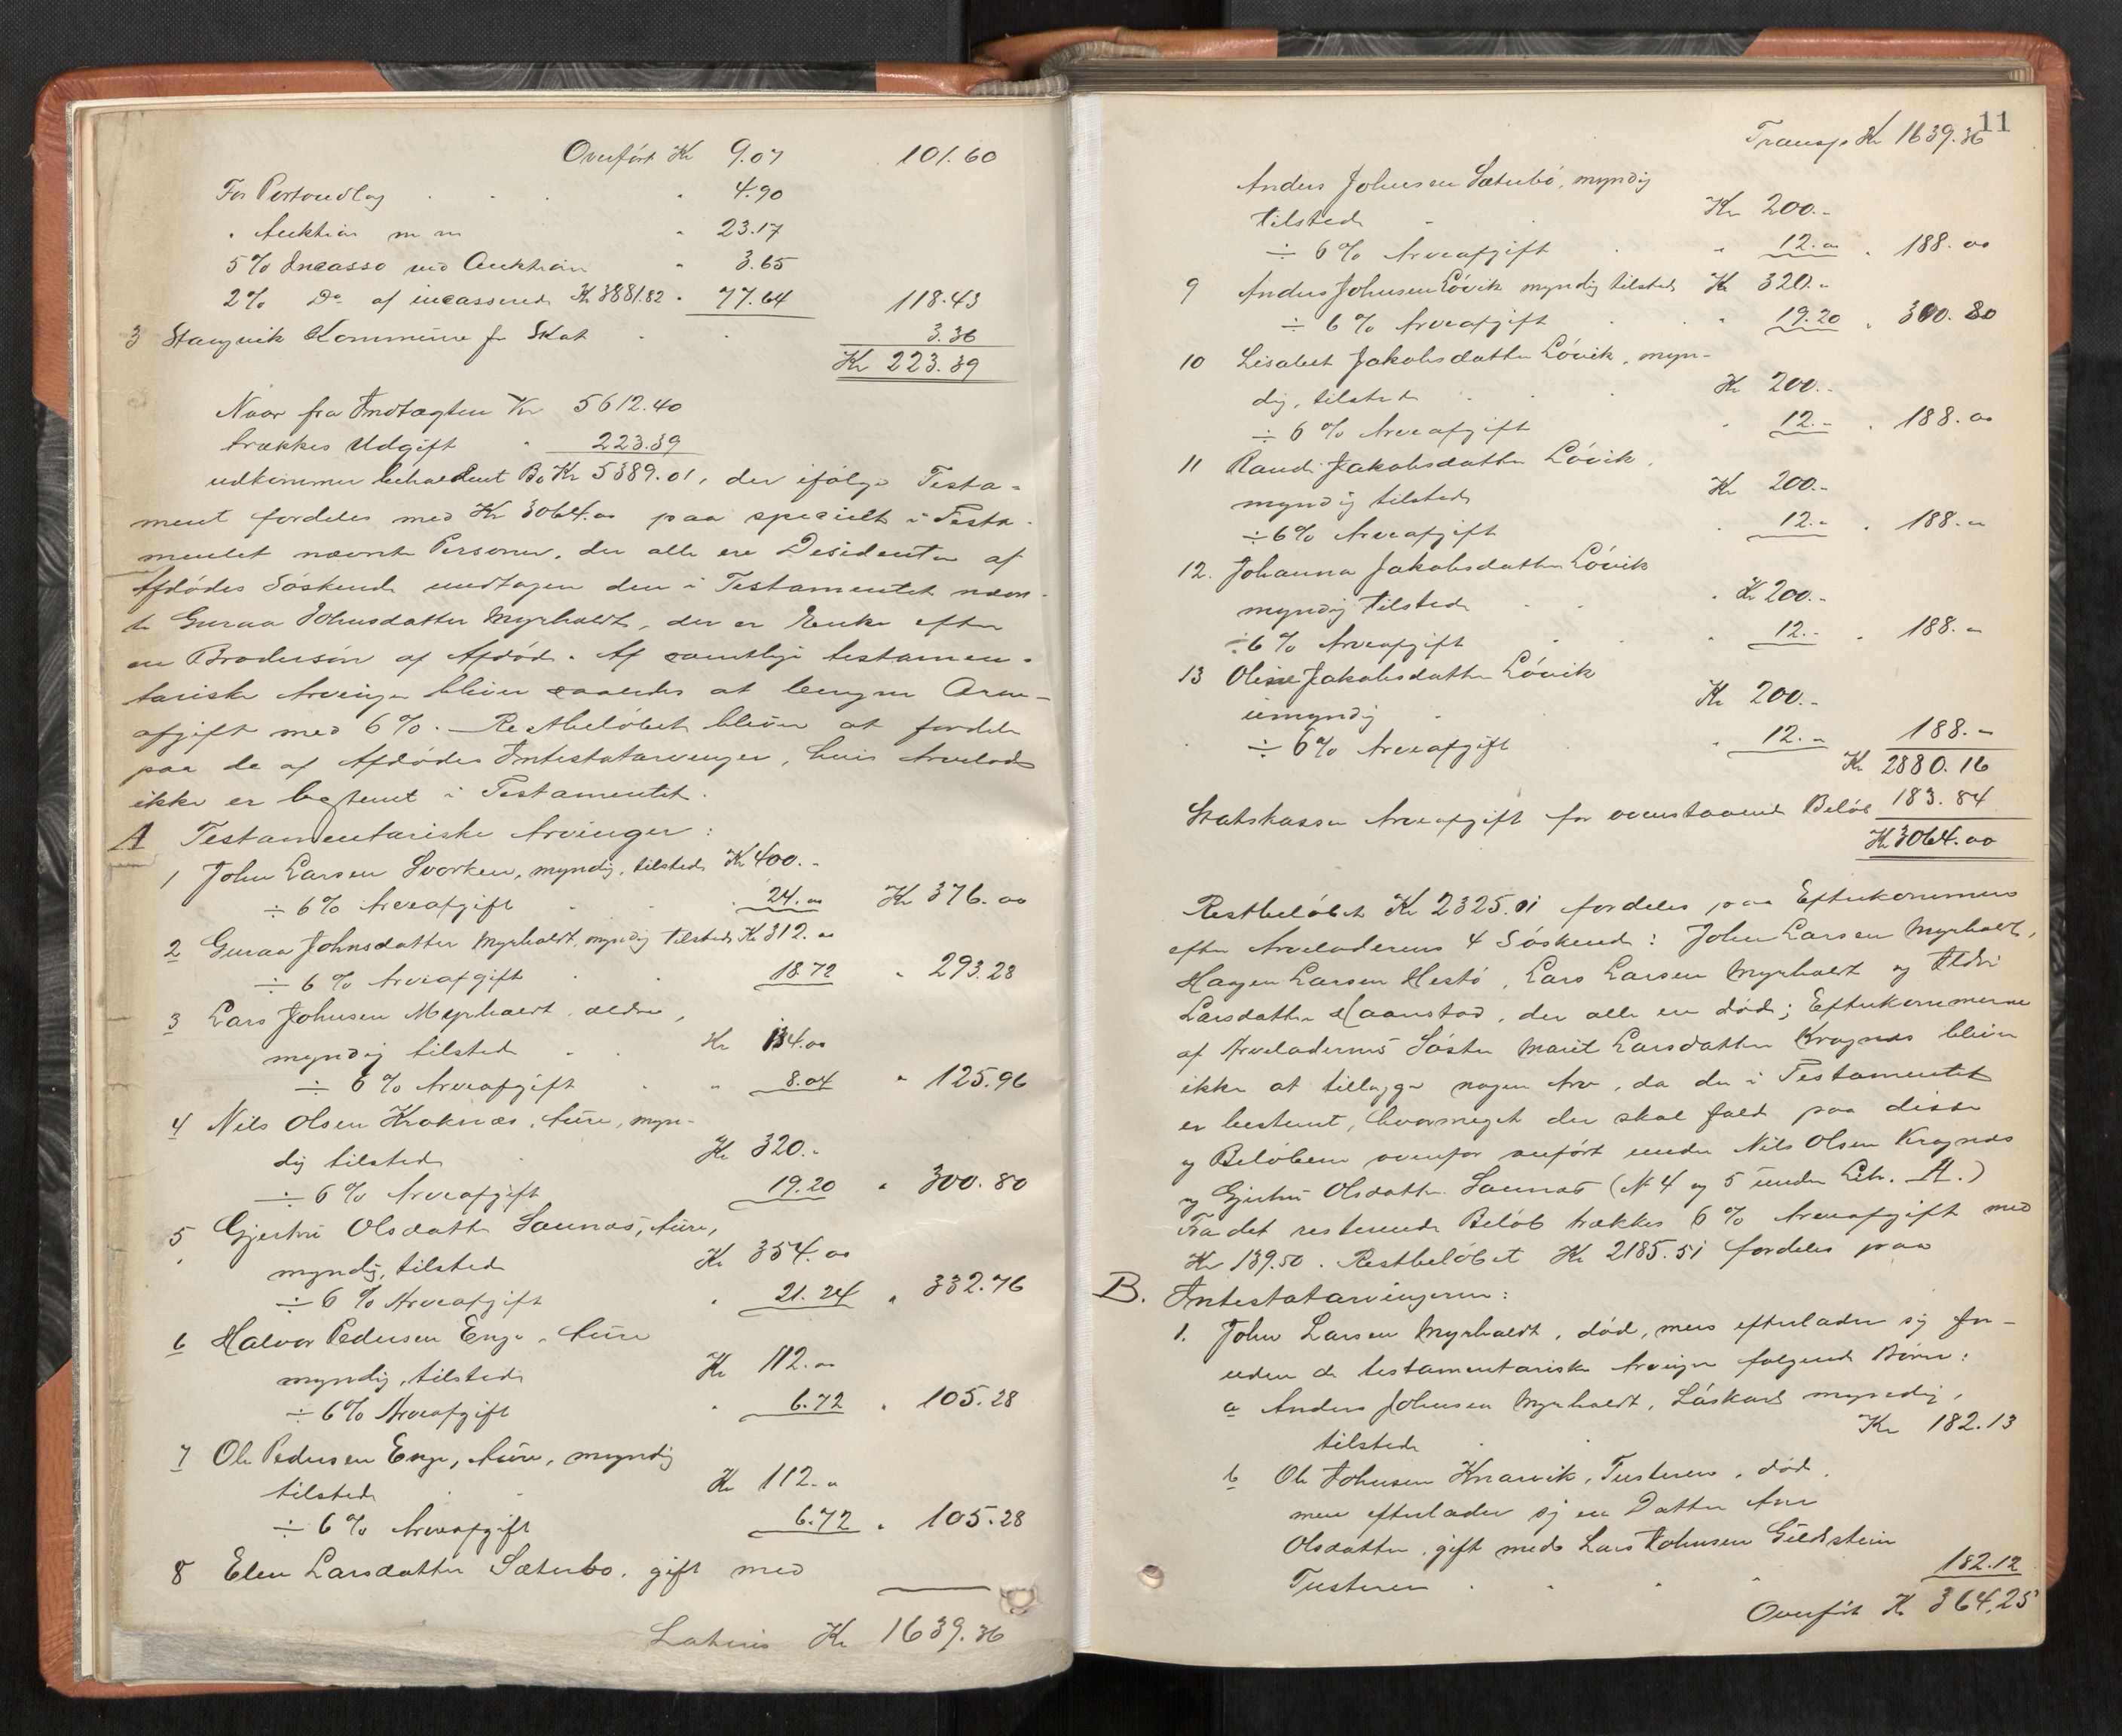 Overført Kr 9.07 101.60
For Portoudlæg " 4.90
" Auktion m m " 23.17
5% Incasso ved Auktion " 3.65
2% Do af incasserede Kr 3881.82 " 77.64 118.43
3 Stangvik Kommune for Skat 3.36
Kr 223.39
Naar fra Indtægten Kr 5612.40
trækkes Udgift " 223.39
udkommer beholdent Bo Kr 5389.01, der ifølge Testa-
ment fordeles med Kr 3064.00 paa specielt i Testa-
mentet nævnte Personer, der alle ere Desidenter af
Afdødes Søskende undtagen den i Testamentet nævn-
te Guraa Johnsdatter Myrholdt, der er Enke efter
en Brodersøn af Afdøde. Af samtlige testamen-
tariske Arvinger bliver saaledes at beregne Arve-
afgift med 6%. Restbeløbet bliver at fordele
paa de af Afdødes Intestatarvinger, hvis Arvelod
ikke er bestemt i Testamentet.
A Testamentariske Arvinger:
1 John Larsen Svorken, myndig, tilstede Kr 400.-
÷ 6% Arveafgift " 24.00 Kr 376.00
2 Guraa Johnsdatter Myrholdt, myndig tilstede Kr 312.00
÷ 6% Arveafgift 18.72 " 293.28
3 Lars Johnsen Myrholdt, ældre,
myndig tilstede Kr 134.00
÷ 6% Arveafgift " 8.04 " 125.96
4 Nils Olsen Kraknæs, Aure, myn-
dig tilstede Kr 320.-
÷ 6% Arveafgift 19.20 " 300.80
5 Gjertru Olsdatter Saunæs, Aure,
myndig, tilstede Kr 354.00
÷ 6% Arveafgift " 21.24 " 332.76
6 Halvor Pedersen Enge, Aure
myndig, tilstede Kr 112.00
÷ 6% Arveafgift " 6.72 " 105.28
7 Ole Pedersen Enge, Aure, myndig
tilstede Kr 112.00
÷ 6% Arveafgift 6.72 " 105.28
8 Elen Larsdatter Sæterbø, gift med
Lateris Kr 1639.36
11
Transp Kr 1639.36
Anders Johnsen Sæterbø, myndig
tilstede Kr 200.-
÷ 6% Arveafgift " 12.00 " 188.00
9 Anders Johnsen Løvik myndig tilstede Kr 320.-
÷ 6% Arveafgift " 19.20 " 300.80
10 Lisabet Jakobsdatter Løvik, myn-
dig, tilstede Kr 200.-
÷ 6% Arveafgift " 12.- " 188.00
11 Randi Jakobsdatter Løvik,
myndig tilstede Kr 200.-
÷ 6% Arveafgift " 12.- " 188.-
12. Johanna Jakobsdatter Løvik
myndig tilstede Kr 200.-
÷ 6% Arveafgift " 12.- " 188.-
13 Oline Jakobsdatter Løvik
umyndig Kr 200.-
÷ 6% Arveafgift " 12.- 188.-
Kr 2880.16
Statskassen Arveafgift for ovenstaaende Beløb 183.84
Kr 3064.00
Restbeløbet Kr 2325.01 fordeles paa Efterkommere
efter Arveladerens 4 Søskende: John Larsen Myrholdt,
Hagen Larsen Hestø, Lars Larsen Myrholdt og Aldri
Larsdatter Haanstad, der alle ere døde; Efterkommerne
af Arveladerens Søster Marit Larsdatter Kragnæs bliver
ikke at tillægge nogen Arv, da der i Testamentet
er bestemt, hvormeget der skal falde paa disse
og Beløbene ovenfor anført under Nils Olsen Kragnæs
og Gjertru Olsdatter Saunæs (No 4 og 5 under Litr. A.)
Fra det resterende Beløb trækkes 6% Arveafgift med
Kr 139.50. Restbeløbet Kr 2185.51 fordeles paa
B. Intestatarvingerne:
1. John Larsen Myrholdt, død, men efterlader sig for-
uden de testamentariske Arvinger følgende Børn:
a Anders Johnsen Myrholdt, myndig,
tilstede Kr 182.13
b Ole Johnsen Knarvik, Tusteren, død,
men efterlader sig en Datter Ane
Olsdatter, gift med Lars Johnsen Gullstein
Tusteren 182.12
Overført Kr 364,25